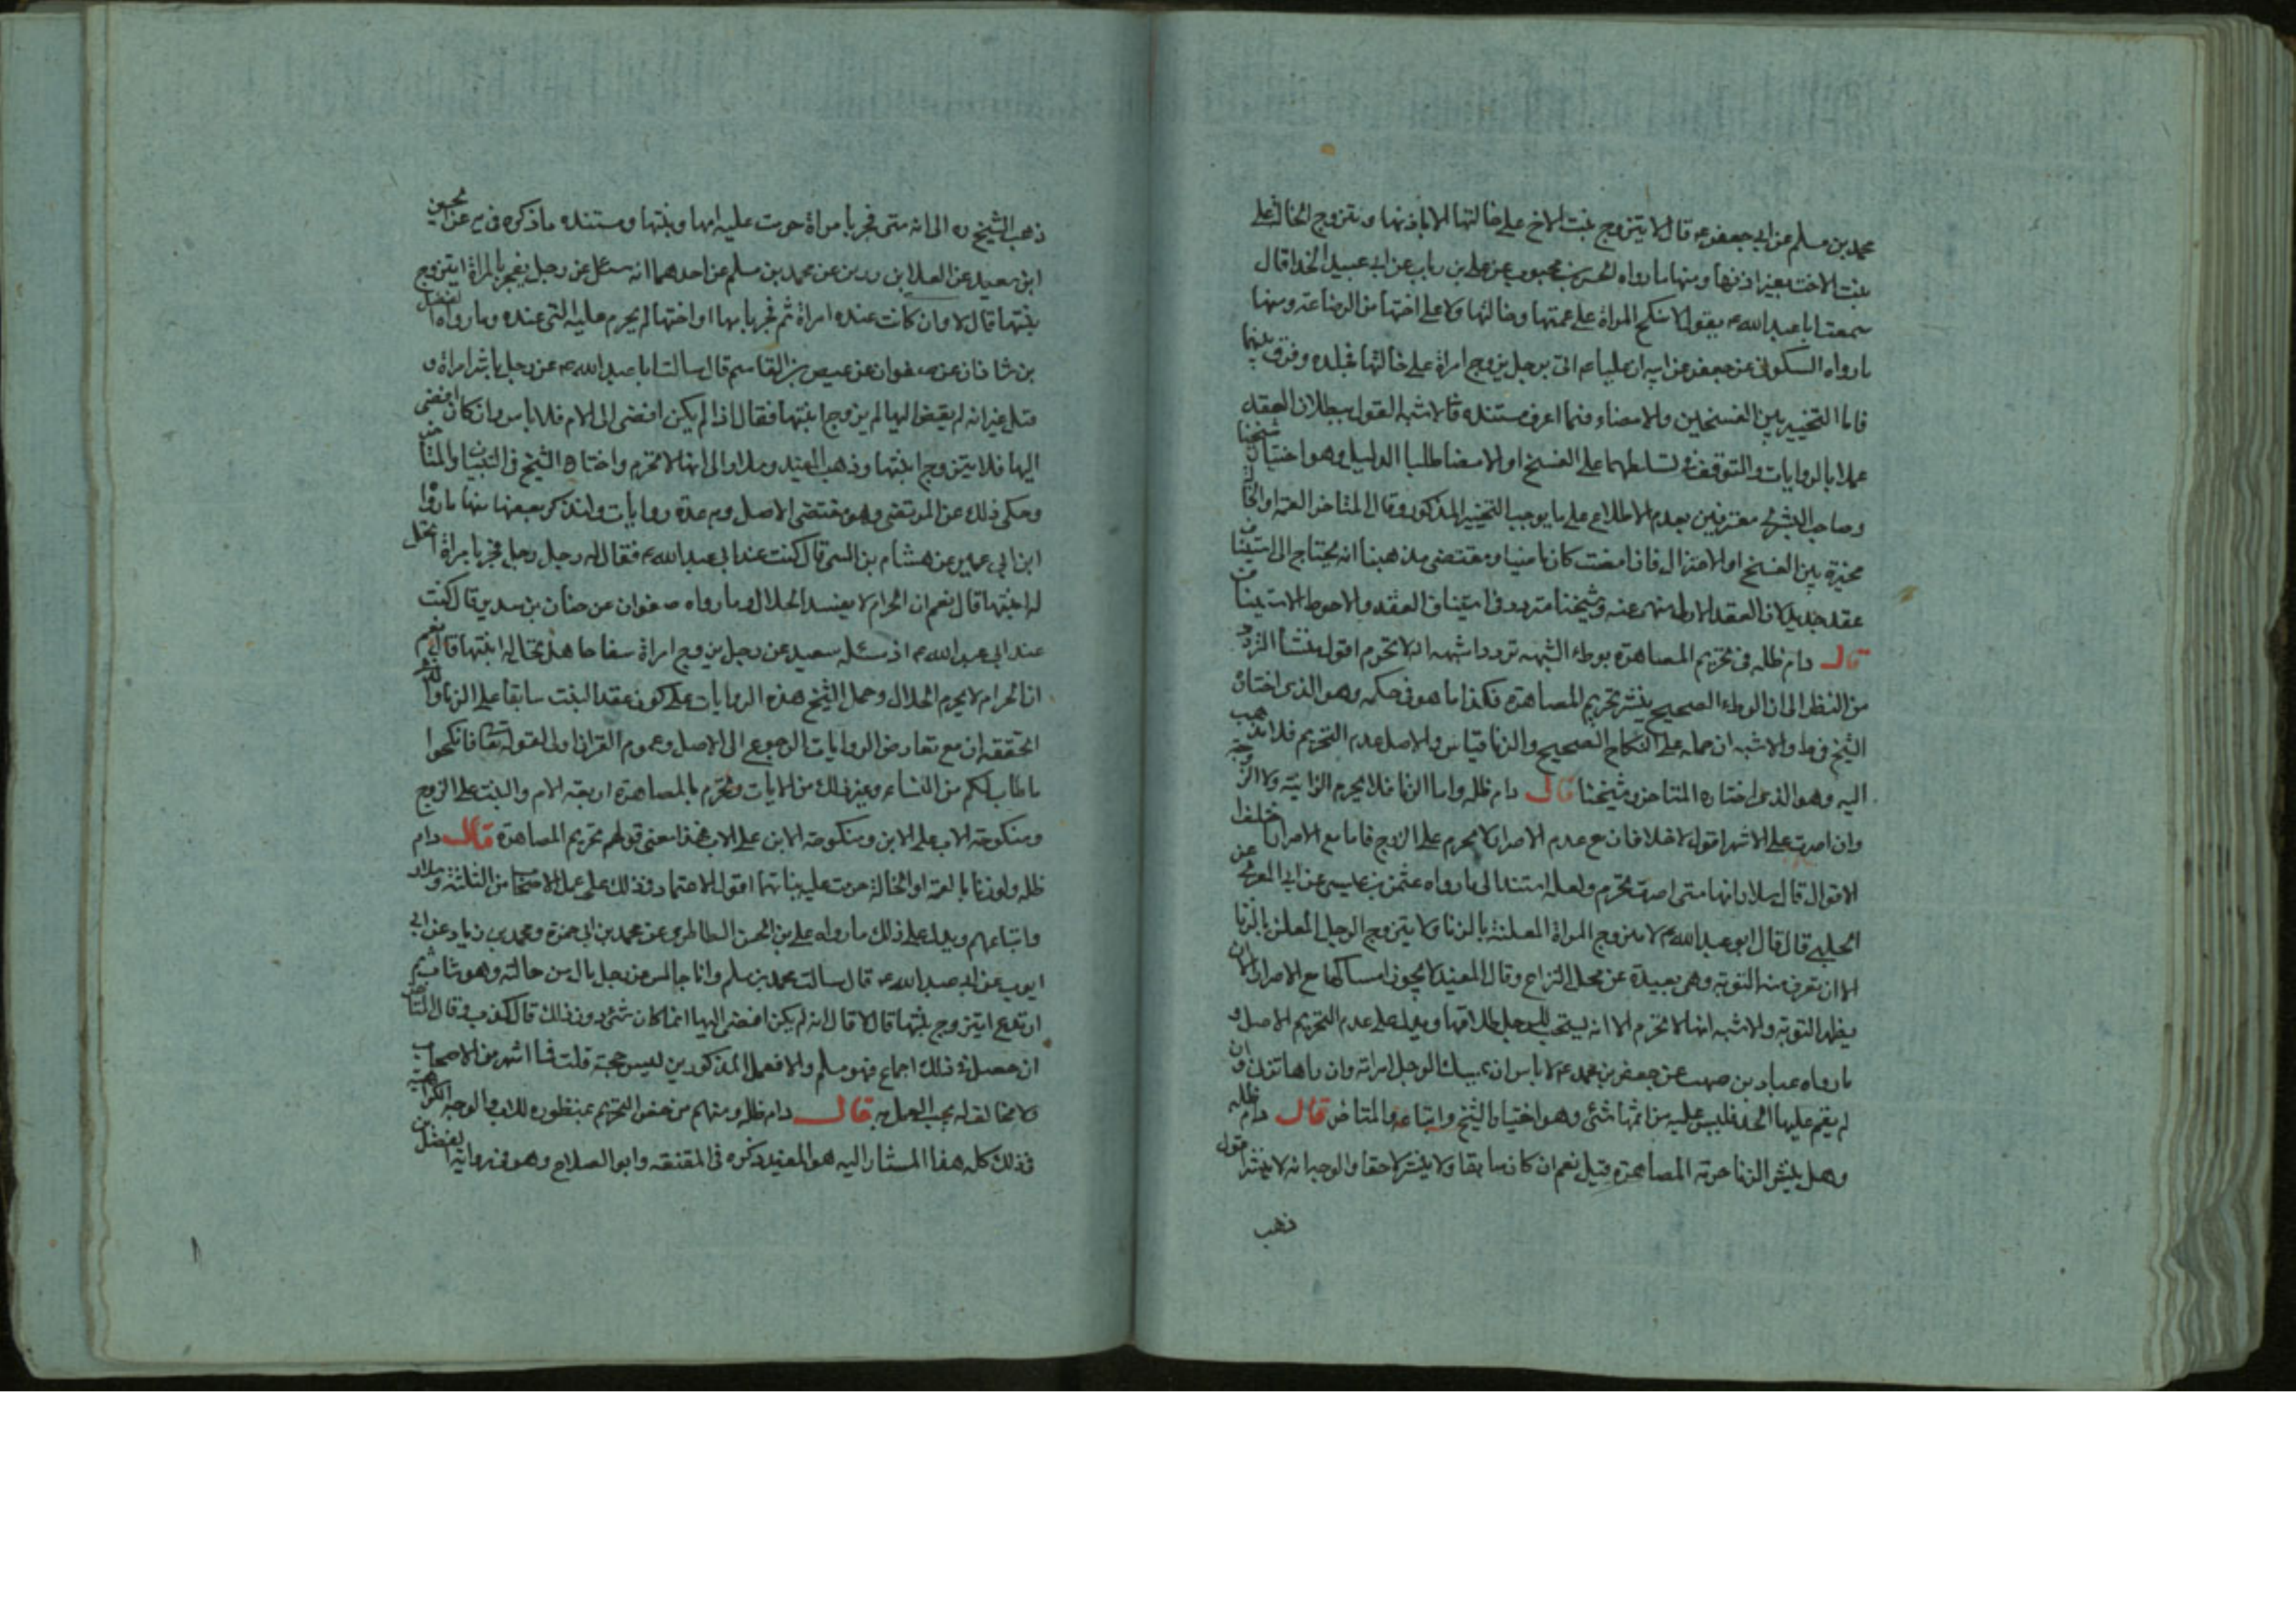 محمد بن مسلم عن ابي جعفر ع قال لا يتزوج بنت الاخ على خالتها الا باذنها ويتزوج الخالة على
بنت الاخت بغير اذنها ومنها ما رواه الحسن بن محبوب عن علي بن رياب عن ابي عبيد الحذا قال
سمعت ابا عبد الله ع يقول لا ينكح المراة على عمتها وخالتها ولا على اختها من الرضاعة ومنها
ما رواه السكوني عن جعفر عن ابيه ان عليا ع اتى برجل يزوج امراة على خالتها فجلده وفرق بينهما
فاما التخيير بين الفسخين والامضاء فما اعرف مستنده فالاشبه القول ببطلان العقد
عملا بالروايات والتوقف في تسلطهما على الفسخ او الامضا طلبا للدليل وهو اختيار شيخنا
وصاحب البشرى معترفين بعدم الاطلاع على ما يوجب التخيير المذكور وقال المتاخر العمة او الخالة
مخيرة بين الفسخ او الاعتزال فاذا مضت كان ماضيا ومقتضى مذهبنا انه يحتاج الى استيناف
عقد جديد لان العقد الاول منهى عنه وشيخنا متردد في استيناف العقد والاحوط الاستيناف
قال دام ظله في تحريم المصاهرة بوطء الشبهة تردد اشبهه انه لا تحرم اقول منشأ التردد
من النظر الى ان الوطء الصحيح ينشر تحريم المصاهرة فكذا ما هو في حكمه وهو الذى اختاره
الشيخ في ط والاشبه ان حمله على النكاح الصحيح والزنا قياس والاصل عدم التحريم فلا نذهب
اليه وهو الذى اختاره المتاخر وشيخنا قال دام ظله واما الزنا فلا يحرم الزانية ولا الزوجة
وان اصرت على الاشهر اقول لا خلاف ان مع عدم الاصرار لا يحرم على الزوج فاما مع الاصرار فاختلف
الاقوال قال سلار انها متى اصرت تحرم ولعله استند الى ما رواه عثمن بن عيسى عن ابي المعزا عن
الحلبي قال قال ابو عبد الله ع لا يتزوج المراة المعلنة بالزنا ولا يتزوج الرجل المعلن بالزنا
الا ان تعرف منه التوبة وهى بعيدة عن محل النزاع وقال المفيد لا يجوز امساكها مع الاصرار الا ان
يظهر التوبة والاشبه انها لا تحرم الا انه يستحب للرجل طلاقها ويدل على عدم التحريم الاصل و
ما رواه عباد بن صهيب عن جعفر بن محمد ع لا باس ان يمسك الرجل امراته وان راها تزنى وان
لم يقم عليها الحد فليس عليه من اثمها شئى وهو اختيار الشيخ واتباعه والمتاخر قال دام ظله
وهل ينشر الزنا حرمة المصاهرة قيل نعم ان كان سابقا ولا ينشر لاحقا والوجه انه لا ينشر اقول
ذهب
ذهب الشيخ ره الى انه متى فجر بامراة حرمت عليه امها وبنتها ومستنده ما ذكره في يب عن الحسين
ابن سعيد عن العلا بن رزين عن محمد بن مسلم عن احدهما انه سئل عن رجل يفجر بالمراة ايتزوج
بنتها قال لا وان كانت عنده امراة ثم فجر بامها او اختها لم يحرم عليه التى عنده وما رواه الفضل
بن شاذان عن صفوان عن عيص بن القاسم قال سالت ابا عبد الله ع عن رجل باشر امراة و
قبل غير انه لم يفض اليها ثم يزوج ابنتها فقال اذا لم يكن افضى الى الام فلا باس وان كان افضى
اليها فلا يتزوج ابنتها وذهب المفيد وسلار الى انها لا تحرم واختاره الشيخ في التبيان والمتاخر
وحكى ذلك عن المرتضى وهو مقتضى الاصل وبه عدة روايات ولنذكر بعضها منها ما رواه
ابن ابي عمير عن هشام بن المثنى قال كنت عند ابي عبد الله ع فقال له رجل رجل فجر بامراة اتحل
له ابنتها قال نعم ان الحرام لا يفسد الحلال وما رواه صفوان عن حنان بن سدير قال كنت
عند ابي عبد الله ع اذ سئله سعيد عن رجل يزوج امراة سفاحا هل تحل له ابنتها قال نعم
ان الحرام لا يحرم الحلال وحمل الشيخ هذه الروايات على كون عقد البنت سابقا على الزنا والذى
احققه ان مع تعارض الروايات الرجوع الى الاصل وعموم القران اولى لقوله تعالى فانكحوا
ما طاب لكم من النساء وغير ذلك من الايات وتحرم بالمصاهرة اربعة الام والبنت على الزوج
ومنكوحة الاب على الابن ومنكوحة الابن على الاب فهذا معنى قولهم تحريم المصاهرة قال دام
ظله ولو زنا بالعمة او الخالة حرمت عليه بناتهما اقول الاعتماد في ذلك على عمل الاصحاب من الثلثة وسلار
واتباعهم ويدل على ذلك ما رواه علي بن الحسن الطاطرى عن محمد بن ابي حمزة ومحمد بن زياد عن ابي
ايوب عن ابي عبد الله ع قال سالت محمد بن مسلم وانا جالس عن رجل نال من خالته وهو شاب ثم
ارتدع ايتزوج بنتها قال لا قال انه لم يكن افضى اليها انما كان شئ دون ذلك قال كذب وقال المتاخر
ان حصل في ذلك اجماع فهو مسلم والا فعمل المذكورين ليس حجة قلت فما اشهر من الاصحاب
ولا مخالف له يجب العمل به قال دام ظله ومنهم من خص التحريم بمنظورة الاب والوجه الكراهية
في ذلك كله هذا المشار اليه هو المفيد ذكره في المقنعه وابو الصلاح وهو في رواية الفضل بن